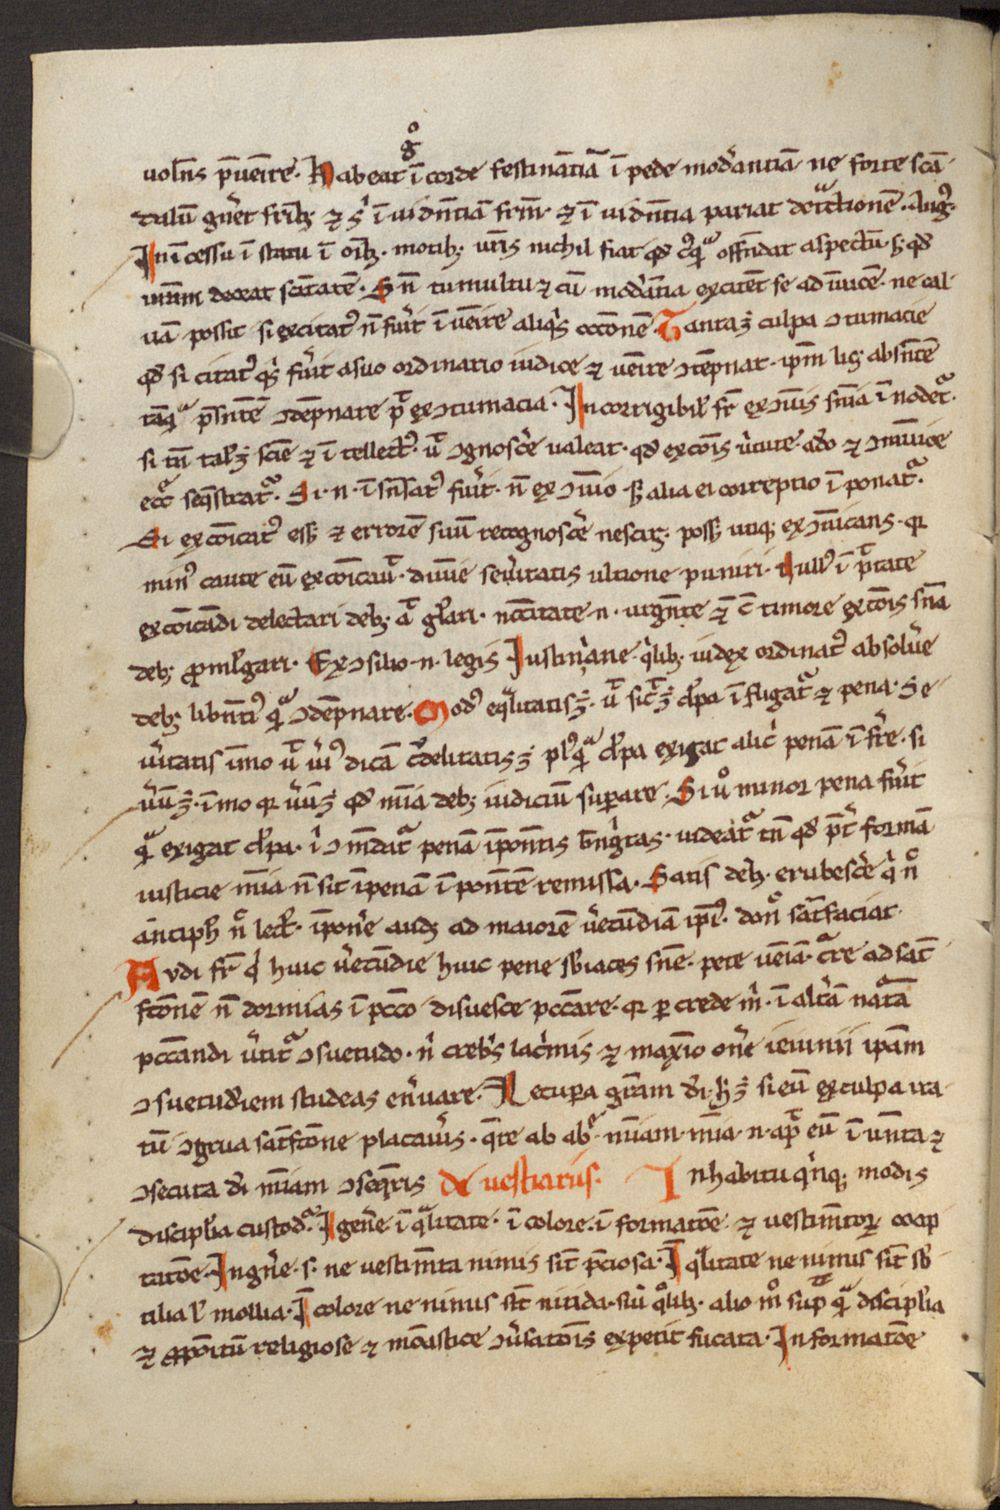 g͛
uolēs p̄uēire. Habeat ī corde festinātiā ī pede mod̾antiā ne forte scā
dalū gn̄et fr̄ib; ⁊ s͛ ī uidn̄tiā frm̄ ⁊ ī uidn̄tia pariat detͣctionē. Aug᷒.
In īcessu ī statu ī oīb; motib; ur̄is nichil fiat qd̄ offēdat aspectū s; qd̄
ur̄am deceat scītatē. Sn̄ tumultu ⁊ cū mod̾ātia excitēt se ad īuicē ne cal
uā possit si excitat᷒ n̄ fu͛it ī uēire aliq͛s Tanta ē culpa ɔtumacie
qd̄ si citat᷒ q͛s fu͛it a suo ordinario iudice ⁊ uēire ɔtēpnat ip̄m lic; absn̄tē
tāqͣ p̄sn̄tē ɔdēpnare pͭ ex ɔtumacia. Incorrigibil̄ fr̄ exɔīs sn̄ia īnodetͬ.
si tn̄ tal̄ ē sciē ⁊ ītellect᷒ ut ɔgnosc͛e ualeat qd̄ excōis u͛tute a deo ⁊ ɔmunioe
ecc̄ seq̄stratͬ. Si n̄ īsn̄sat᷒ fu͛it n̄ ex ɔīo s; alia ei correptio īponatͬ.
Si excōicat᷒ ess; ⁊ errorē suū recognosc͛e nescir; poss; utiq; exɔīcans q͛
min᷒ caute eū excōicauͭ diuīe seu͛itatis ultione puniri. Null᷒ ī p̄tate
excōicādi delectari deb; aͭ gl̄ari. nc̄cītate n̄ urgn̄te ⁊ c̄ timore excōis sn̄ia
deb; ꝓml̄gari. Ex ɔsilio n̄ legis Iustin͛ane q͛lib; iudex ordinat᷒ absolu͛e
deb; libn̄ti᷒ qͣ ɔdēpnare. Mod᷒ eq̄litatis ē ut sic̄ ē cl̄pa īfligatͬ ⁊ pena. Se
u͛itatis īmo ut u͛i᷒ dicā c͛delitatis ē pl᷒qͣ cl̄pa exigat alic͛ penā īfr̄e. si
u͛ū ē īmo q͛ u͛ū ē qd̄ mīa deb; iudiciū suꝑare. Si uͦ minor pena fu͛it
qͣ exigat cl̄pa. ī ɔmēdatͬ penā īponēt̄is bn̄ig͛tas. uideatͬ tn̄ qd̄ p̄t͛ formā
iusticie mīa n̄ sit ī penā īponēntē remissa. Satis deb; erubesc͛e q͛ nͦ
antiph nͦ lect͛ īpon͛e aud; ad maiorē u͛ecūdiā ip̄i᷒ donͦ sāt̄faciat.
Audi fr̄ q͛ huic u͛ecūdie huic pene sb̄iaces sn̄e. pete ueiā. c͛re ad satī
fc̄onē n̄ dormias ī pcc̄o disuesce pcc̄are. q͛ ꝑ crede m͛ ī alt͛ā nāt̄ā
pcc̄andi u͛titͬ ɔsuetudo. n͛ creb͛s lac͛mis ⁊ maxīo on͛e ieiunii ip̄am
ɔsuetudīem studeas en͛uare. Recuꝑa grām di͛. s; ē si eū ex culpa ira
tū ɔgrua satīfc̄one placau͛is. q̄re ab ab͛ mīam. mīa n̄ apͭ eū īuēnta ⁊
ɔsecuta di͛ mīam ɔseq̄ris De uestiariis. In habitu q͛nq; modis
discipl̄ia custoditͬ. In gen͛e ī qͣlitate ī colore ī formatōe ⁊ uestimētoꝝ coap
tatōe. In gn͛e s. ne uestimēta nimis sīt p̄ciosa. In qͣlitate ne nimis sīt sb̄
tilia l̄ mollia. In colore ne nimis sīt nitida. siu͛ qͦlib; alio mͦ sup qͣ discipl̄ia
⁊ ꝓpoītū religiose ⁊ monastice ɔu͛satōis expetit fucata. In formatōe